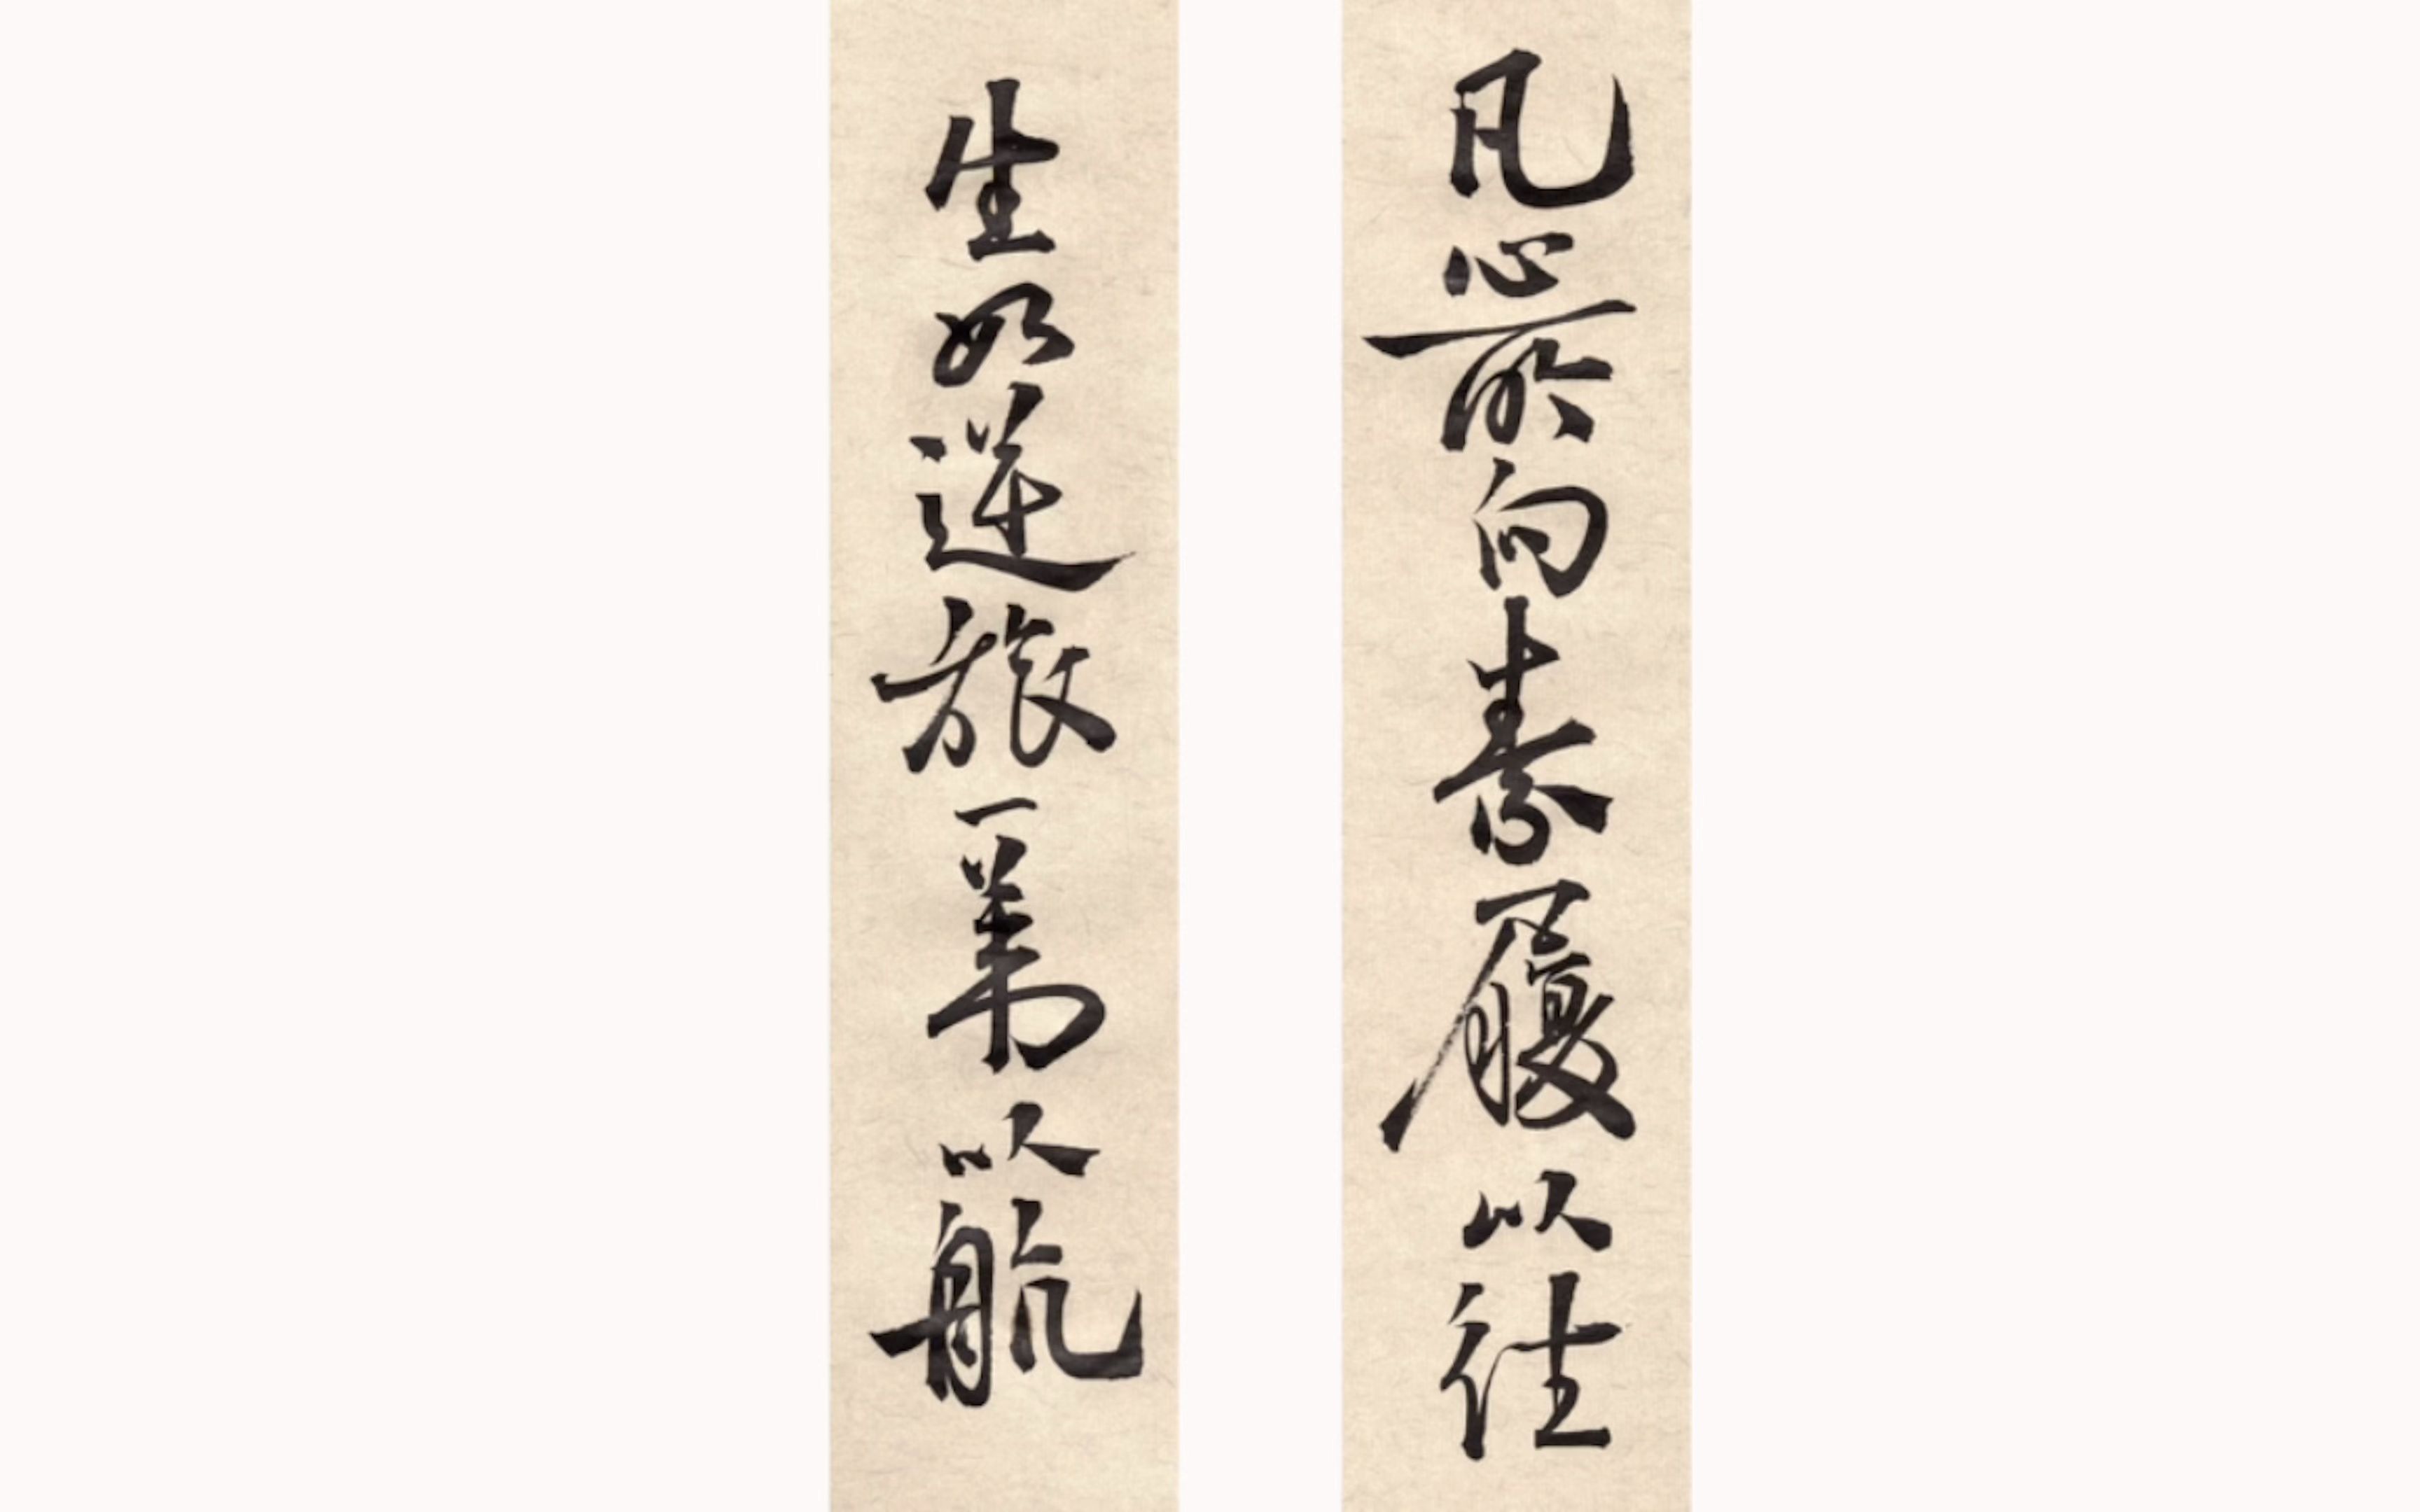 凡心所向素履以往
生如逆旅一苇以航